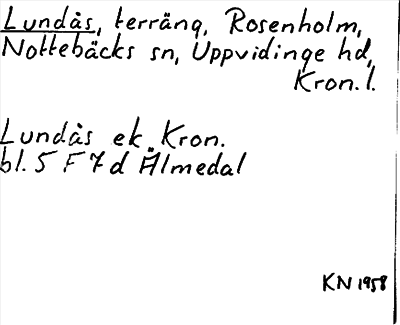 Lundås, terräng, Rosenholm,
Nottebäcks sn, Uppvidinge hd,
Kron. l.
Lundås ek. Kron.
bl. 5 F 7 d Älmedal
KN 1958